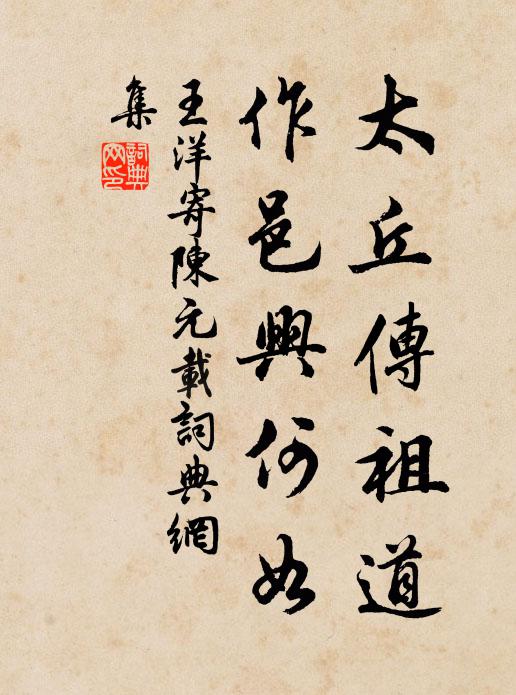 太丘傳祖道
作邑興何如
王洋寄陳元載詞典網
集
詞典
网印